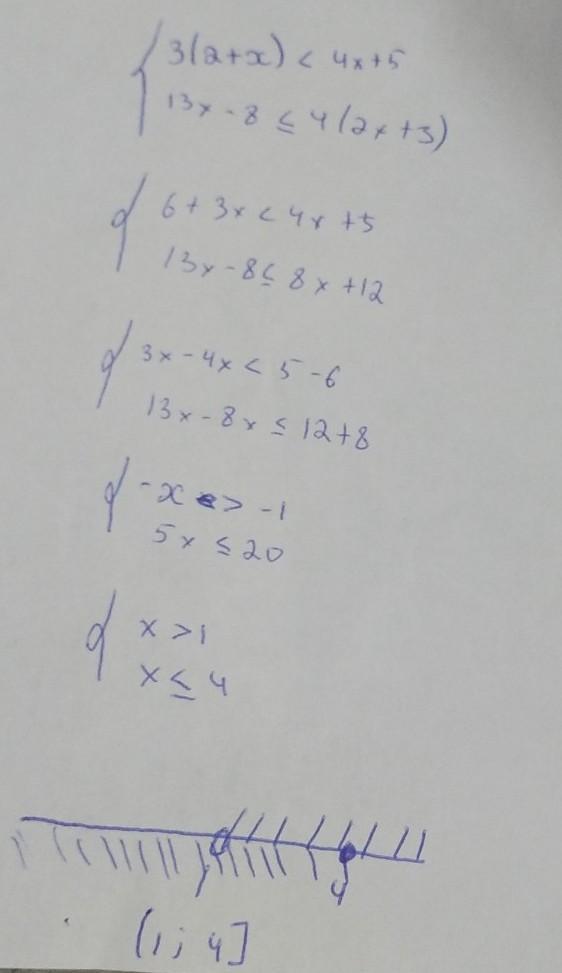 3(2+x) < 4x+5
13x - 8 ≤ 4(2x+3)
6 + 3x < 4x + 5
13x - 8 ≤ 8x + 12
3x - 4x < 5 - 6
13x - 8x ≤ 12 + 8
-x > -1
5x ≤ 20
x > 1
x ≤ 4
1 4
(1; 4]